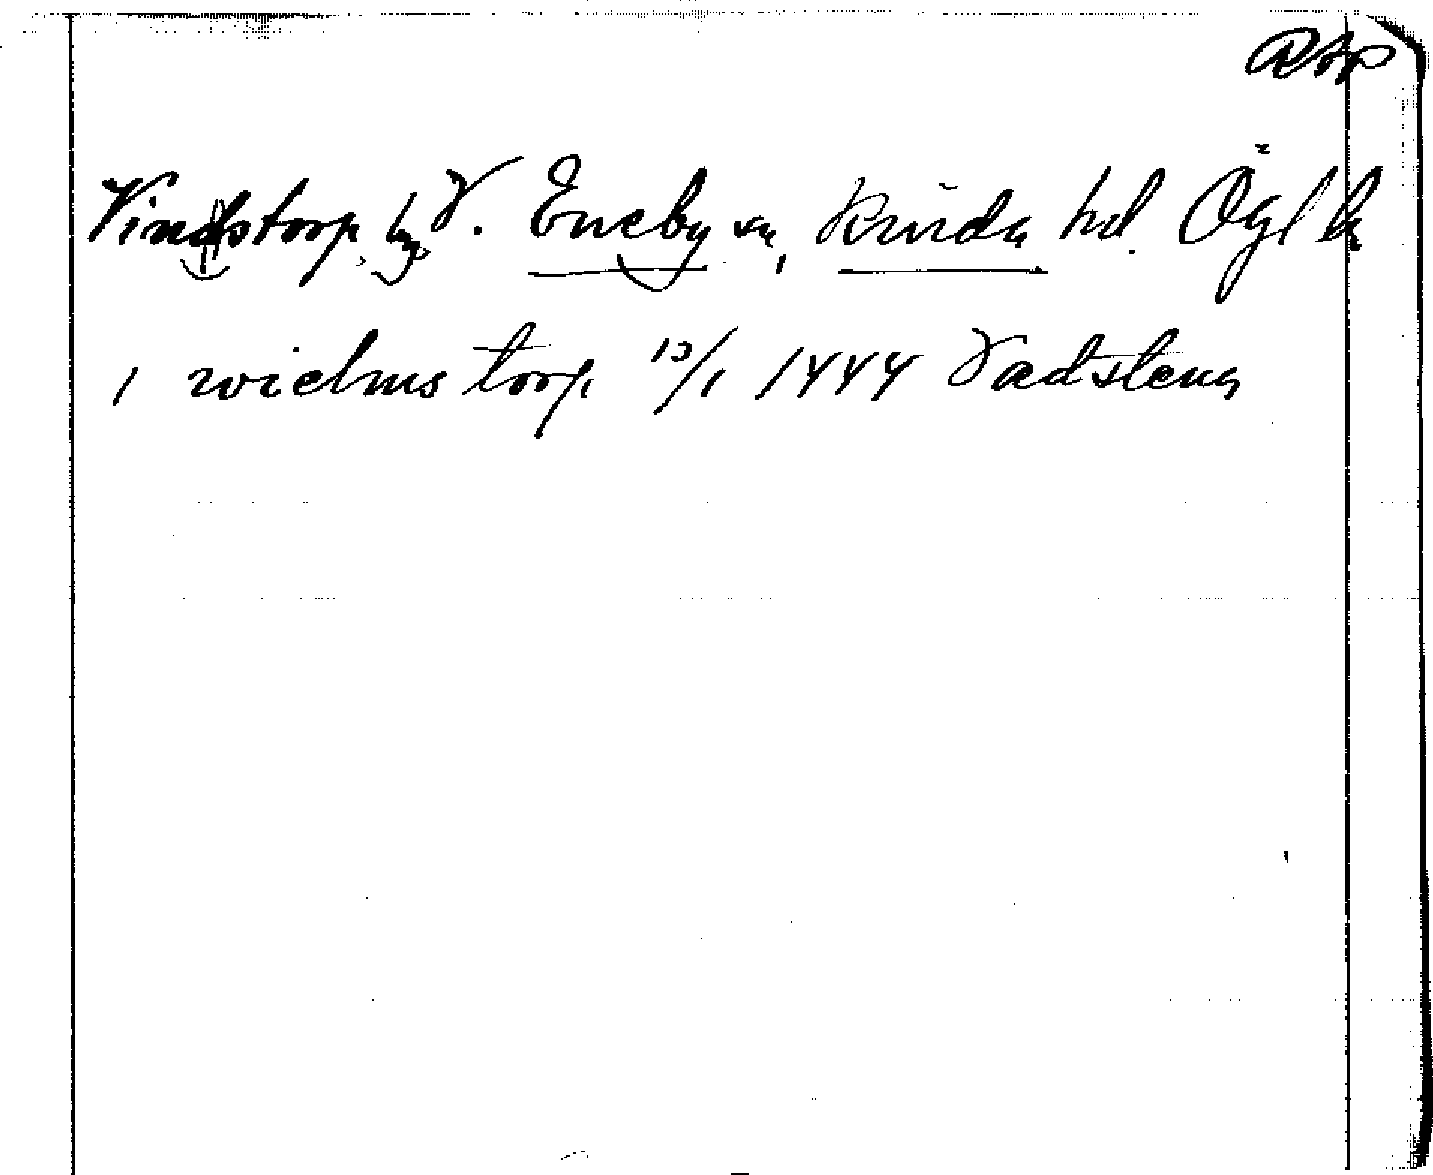 RAp
Vindstorp, by, V. Eneby sn, Kinda hd. Ögl
i wichns torp 10/1 1444 Vadstena